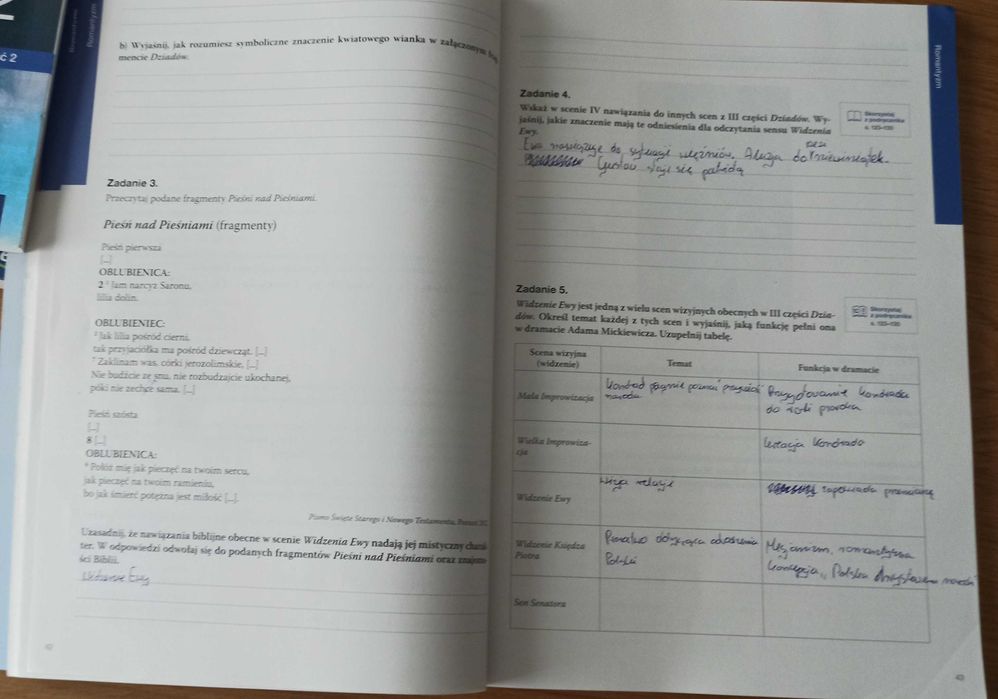 ć 2
Romantyzm
b) Wyjaśnij, jak rozumiesz symboliczne znaczenie kwiatowego wianka w załączonym
mencie Dziadów.
Zadanie 3.
Przeczytaj podane fragmenty Pieśni nad Pieśniami.
Pieśń nad Pieśniami (fragmenty)
Pieśń pierwsza
[...]
OBLUBIENICA:
2 ¹ Jam narcyz Saronu,
lilia dolin.
OBLUBIENIEC:
² Jak lilia pośród cierni,
tak przyjaciółka ma pośród dziewcząt. [...]
⁷ Zaklinam was, córki jerozolimskie, [...]
Nie budźcie ze snu, nie rozbudzajcie ukochanej,
póki nie zechce sama. [...]
Pieśń szósta
[...]
8 [...]
OBLUBIENICA:
⁶ Połóż mię jak pieczęć na twoim sercu,
jak pieczęć na twoim ramieniu,
bo jak śmierć potężna jest miłość [...].
Pismo Święte Starego i Nowego Testamentu, Poznań
Uzasadnij, że nawiązania biblijne obecne w scenie Widzenia Ewy nadają jej mistyczny
ter. W odpowiedzi odwołaj się do podanych fragmentów Pieśni nad Pieśniami oraz
ści Biblii.
Widzenie Ewy
42
Romantyzm
Zadanie 4.
Wskaż w scenie IV nawiązania do innych scen z III części Dziadów. Wy-
jaśnij, jakie znaczenie mają te odniesienia dla odczytania sensu Widzenia
Ewy.
Skorzystaj
z podręcznika
Ewa nawiązuje do sytuacji więźniów. Aluzja do
Gustaw staje się
Zadanie 5.
Widzenie Ewy jest jedną z wielu scen wizyjnych obecnych w III części Dzia-
dów. Określ temat każdej z tych scen i wyjaśnij, jaką funkcję pełni ona
w dramacie Adama Mickiewicza. Uzupełnij tabelę.
Skorzystaj
z podręcznika
Scena wizyjna
(widzenie)
Temat
Funkcja w dramacie
Mała Improwizacja
Konrad pragnie poznać przyszłość
narodu
Przygotowanie Konrada
do roli proroka
Wielka Improwiza-
cja
Konrada
Widzenie Ewy
wizja relacje
zapowiada przemianę
Widzenie Księdza
Piotra
dotycząca odrodzenia
Polski
Mesjanizm, romantyczna
koncepcja "Polska Chrystusem narodów
Sen Senatora
43